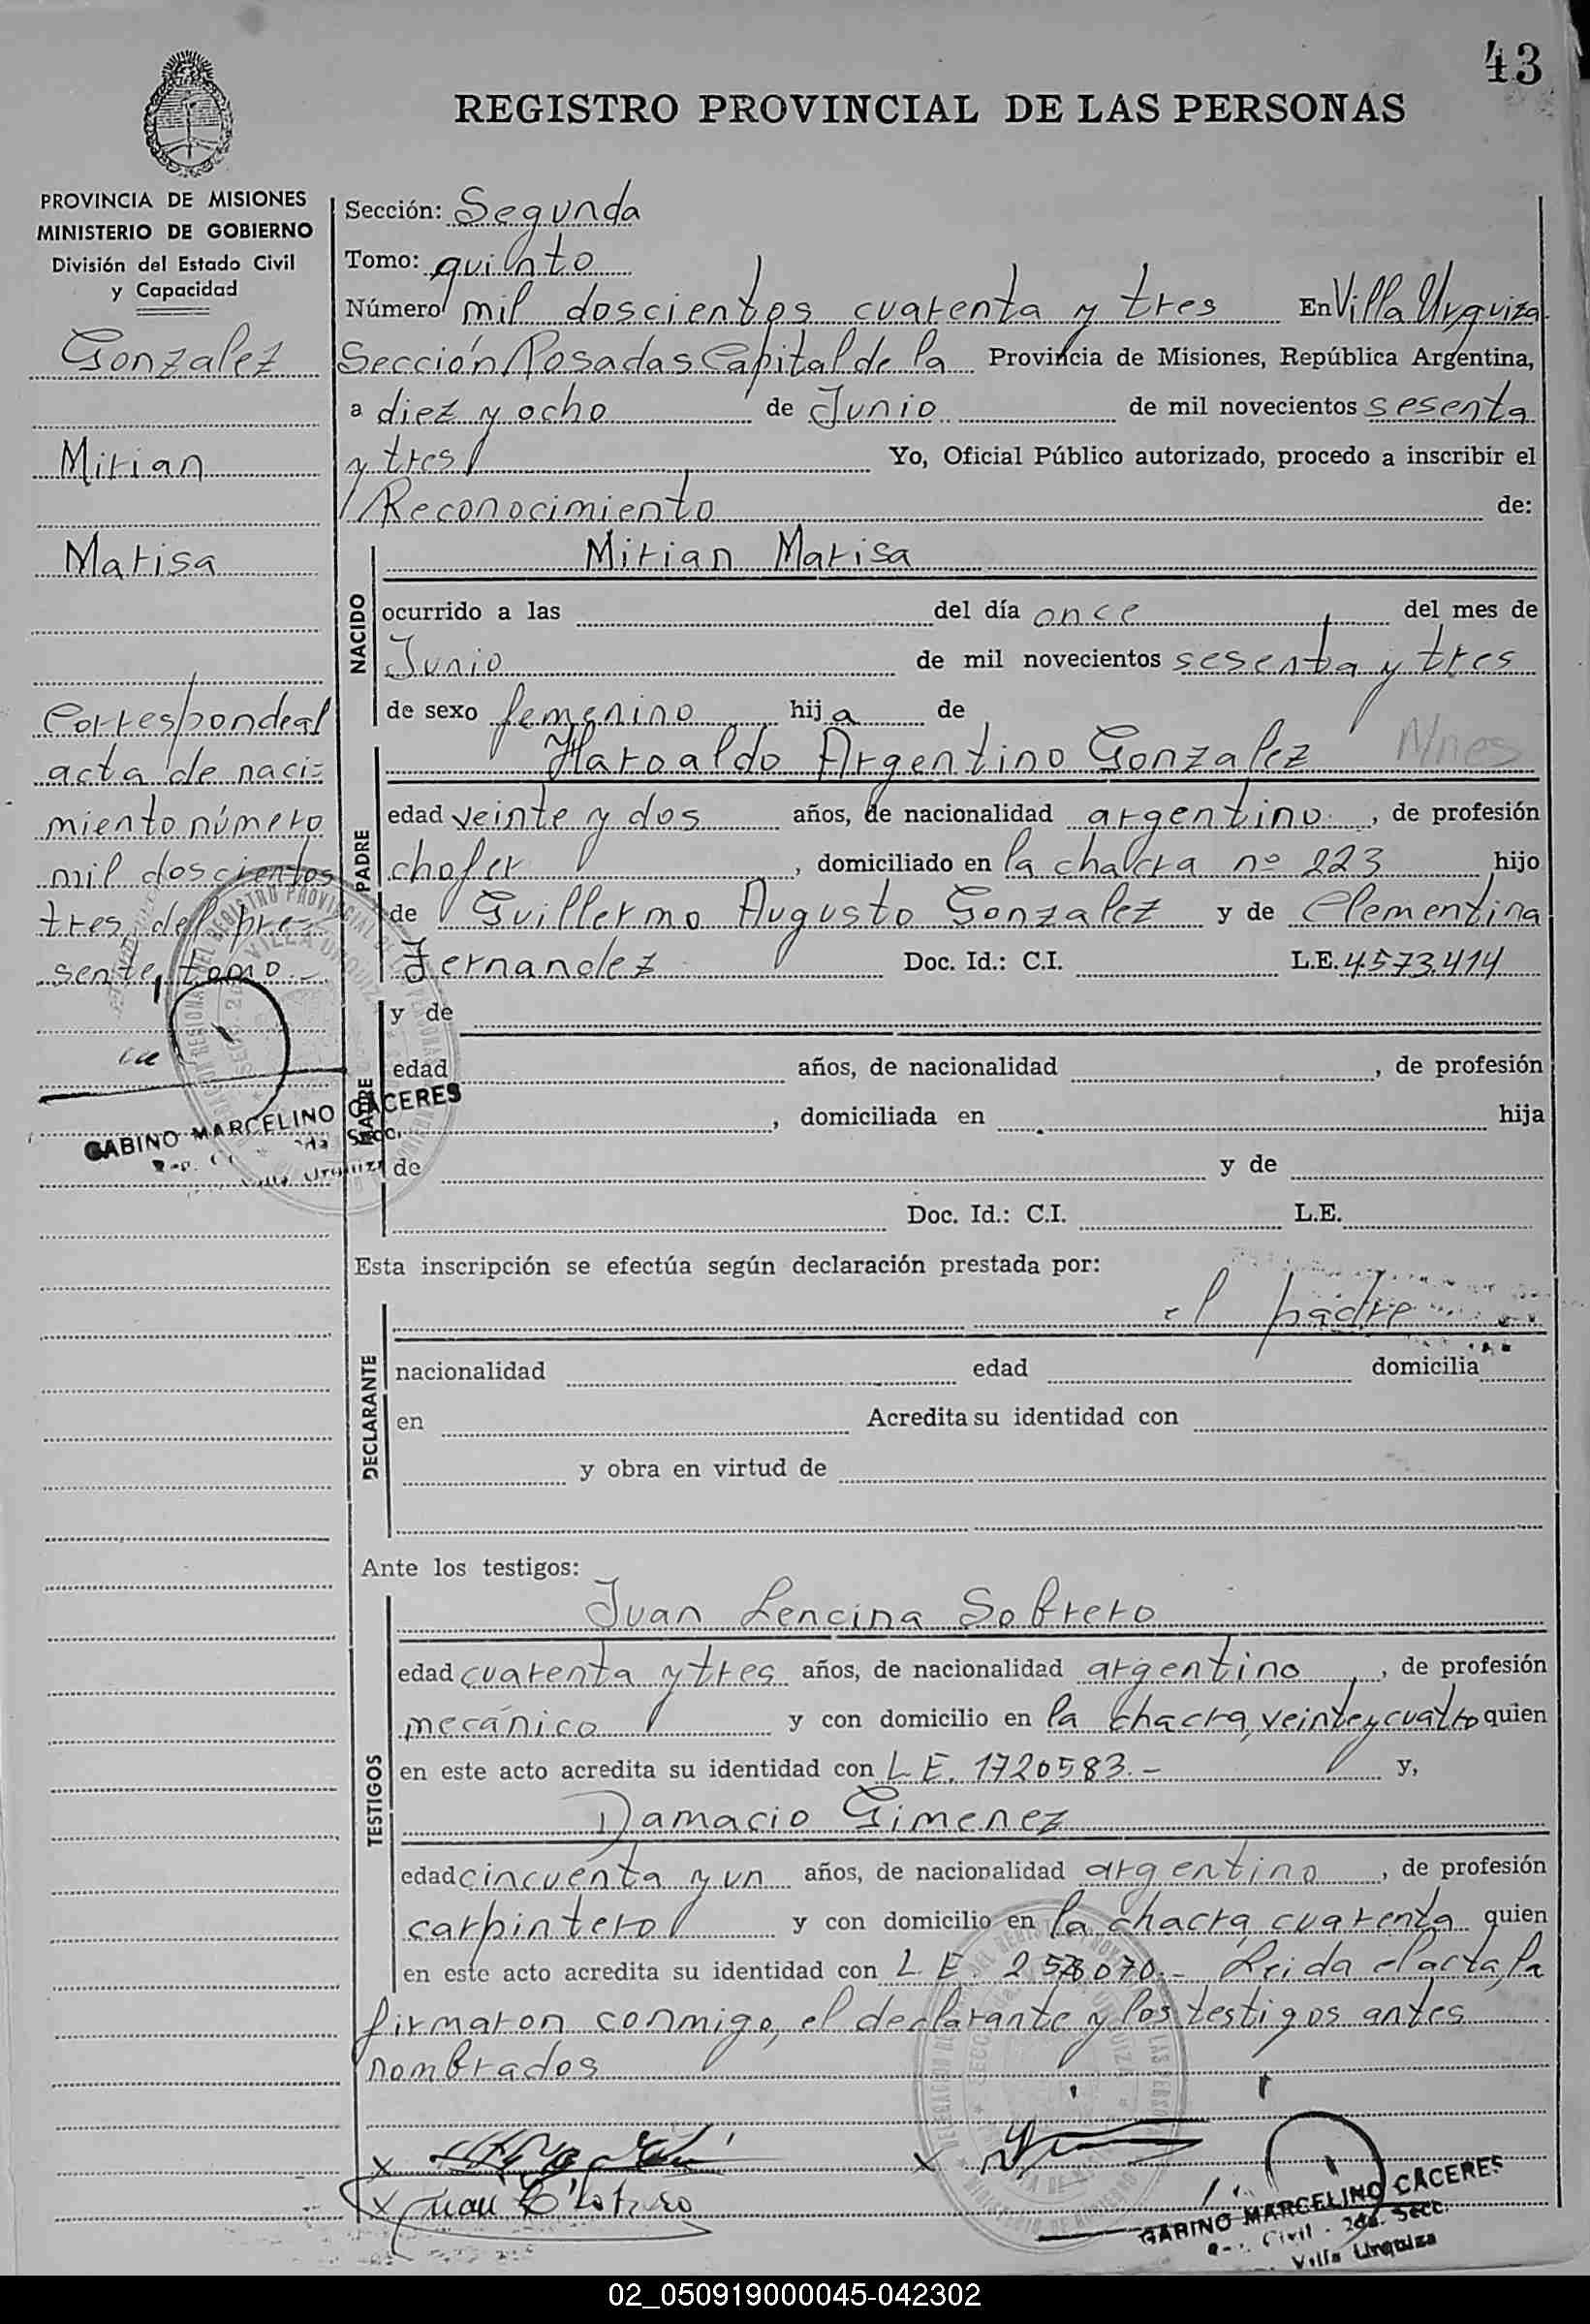 43
REGISTRO PROVINCIAL DE LAS PERSONAS
PROVINCIA DE MISIONES
MINISTERIO DE GOBIERNO
División del Estado Civil
y Capacidad
Gonzalez
Mirian
Marisa
Corresponde al
acta de naci-
miento número
mil doscientos
tres, del pre-
sente, tomo.-
GABINO MARCELINO CACERES
2da Secc.
Villa Urquiza
Sección: Segunda
Tomo: quinto
Número mil doscientos cuarenta y tres En Villa Urquiza
Sección Posadas Capital de la Provincia de Misiones, República Argentina,
a diez y ocho de Junio de mil novecientos sesenta
y tres Yo, Oficial Público autorizado, procedo a inscribir el
Reconocimiento de:
NACIDO
Mirian Marisa
ocurrido a las del día once del mes de
Junio de mil novecientos sesenta y tres
de sexo femenino hija de
PADRE
Haroaldo Argentino Gonzalez Mnes
edad veinte y dos años, de nacionalidad argentino, de profesión
chofer, domiciliado en la chacra nº 223 hijo
de Guillermo Augusto Gonzalez y de Clementina
Fernandez Doc. Id.: C.I. L.E. 4573.414
MADRE
y de
edad años, de nacionalidad , de profesión
, domiciliada en hija
de y de
Doc. Id.: C.I. L.E.
Esta inscripción se efectúa según declaración prestada por:
DECLARANTE
el padre
nacionalidad edad domicilia
en Acredita su identidad con
y obra en virtud de
Ante los testigos:
TESTIGOS
Juan Lencina Sobrero
edad cuarenta y tres años, de nacionalidad argentino, de profesión
mecánico y con domicilio en la chacra, veinte y cuatro quien
en este acto acredita su identidad con L E. 1720583.- y,
Damacio Gimenez
edad cincuenta y un años, de nacionalidad argentino, de profesión
carpintero y con domicilio en la chacra cuarenta quien
en este acto acredita su identidad con L. E. Leida el acta, la
firmaron conmigo, el declarante y los testigos antes
nombrados
GABINO MARCELINO CACERES
Civil - 2da. Secc.
Villa Urquiza
02_050919000045-042302